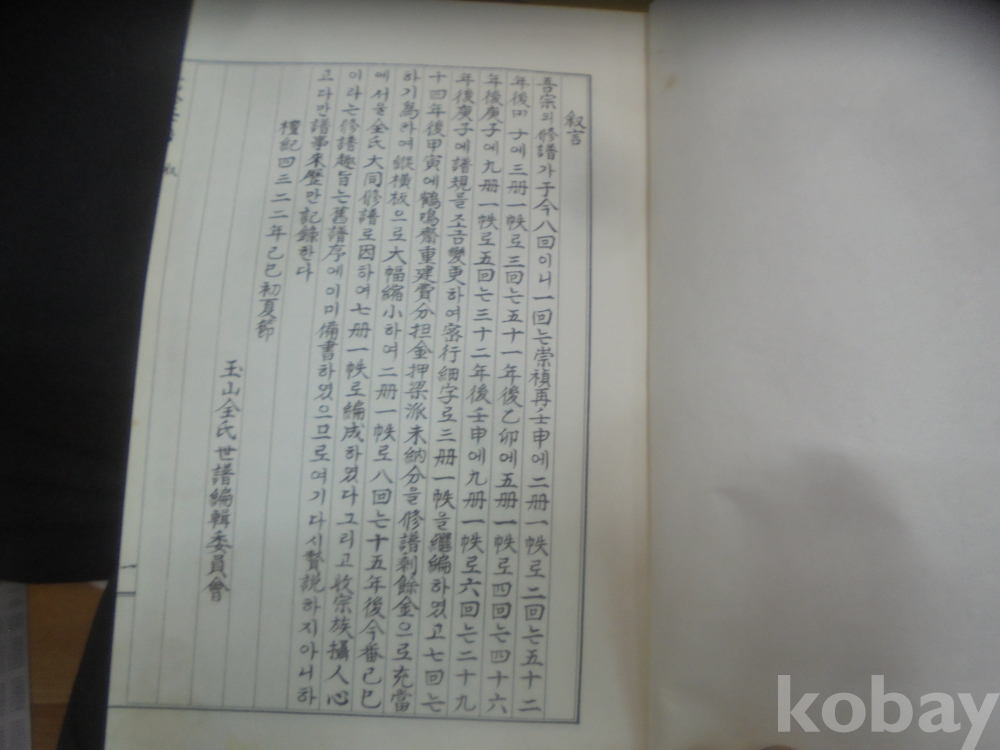 叙言
吾宗의修譜가于今八回이니一回는崇禎再壬申에二册一帙로二回는五十二
年後 子에三册一帙로三回는五十一年後乙卯에五册一帙로四回는四十六
年後庚子에九册一帙로五回는三十二年後壬申에九册一帙로六回는二十九
年後庚子에譜規를조금變更하여密行細字로三册一帙을繼編하였고七回는
十四年後甲寅에鶴鳴齋重建費分担金押梁派未納分을修譜剩餘金으로充當
하기爲하여縱橫板으로大幅縮小하여二册一帙로八回는十五年後今番己巳
에서울全氏大同修譜로因하여七册一帙로編成하였다그리고收宗族攝人心
이라는修譜趣旨는舊譜序에이미備書하였으므로여기다시贅説하지아니하
고다만譜事来歷만記錄한다
檀紀四三二二年己巳初夏節
玉山全氏世譜編輯委員會
kobay